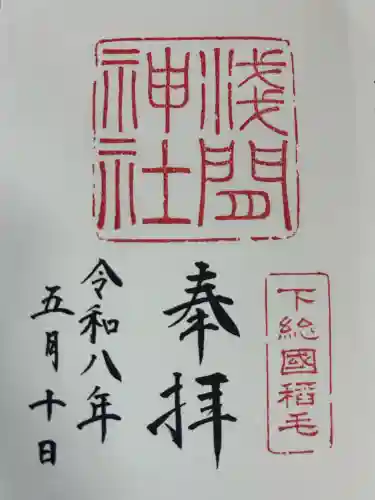 淺間
神社
下総國稲毛
奉拝
令和八年
五月十日